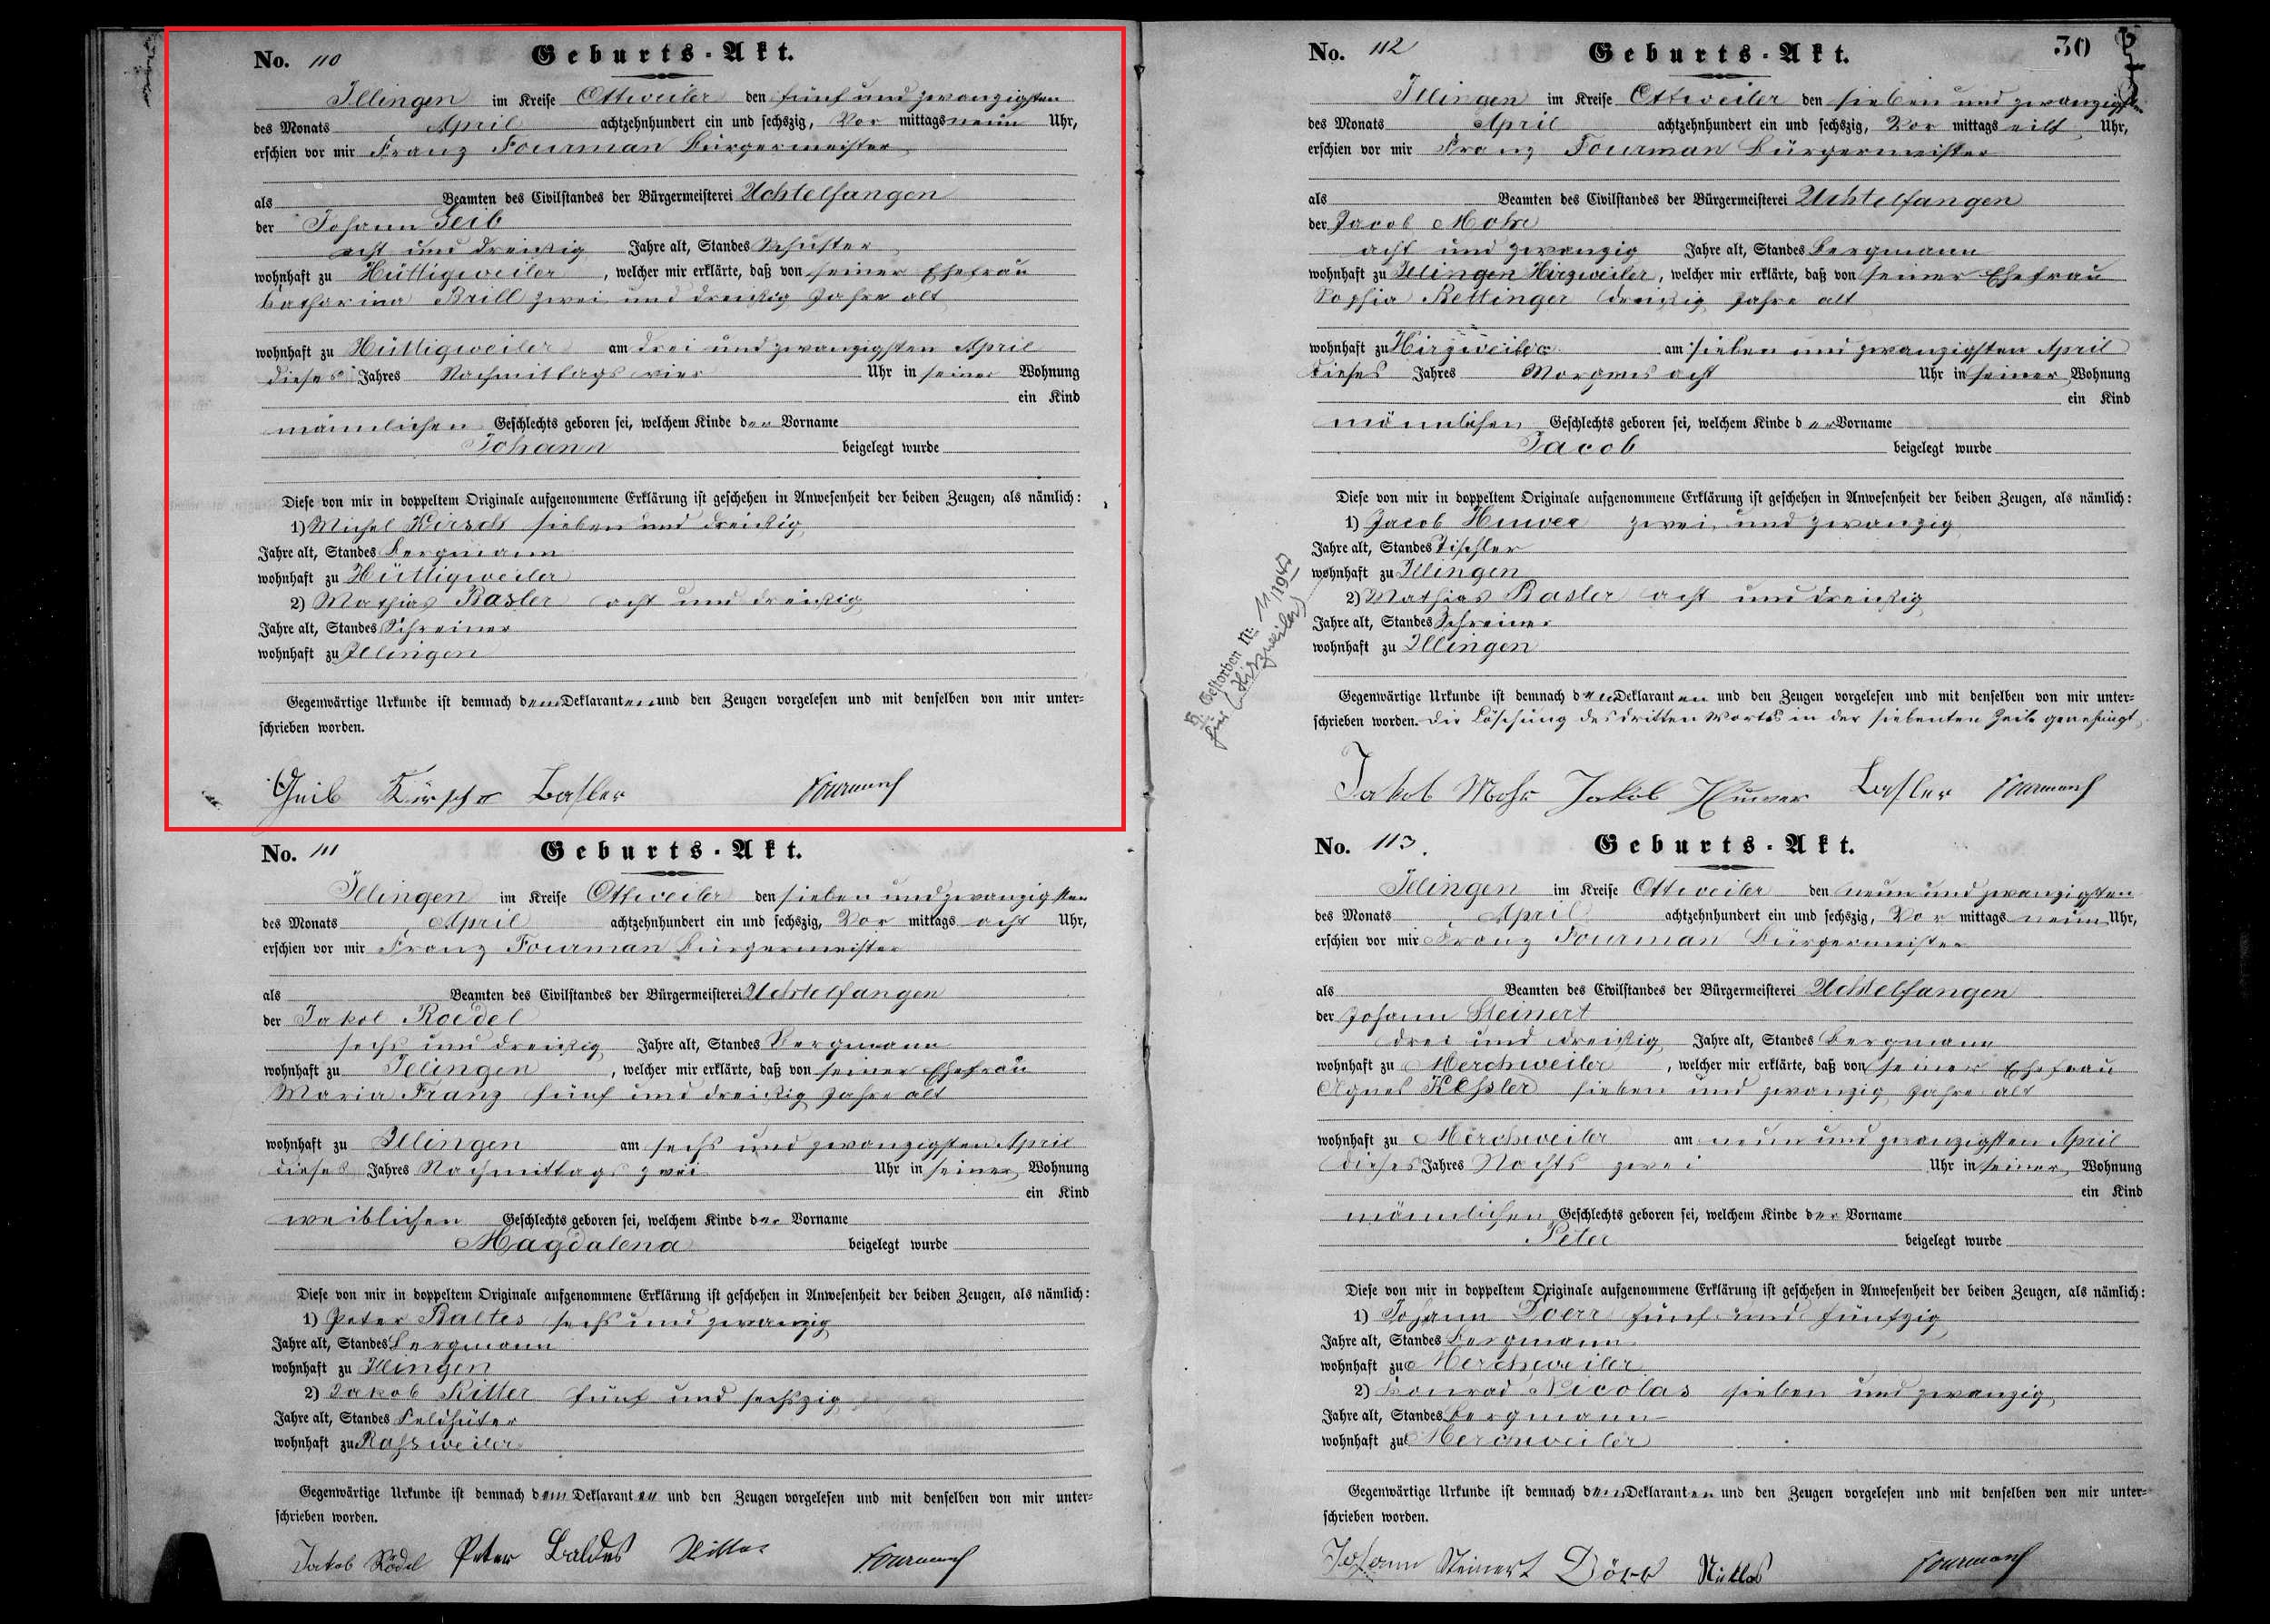 No. 110 Geburts-Akt.
Illingen im Kreise Ottweiler den fünf und zwanzigsten
des Monats April achtzehnhundert ein und sechszig, Vor mittags neun Uhr,
erschien vor mir Franz Fourman Bürgermeister
als Beamten des Civilstandes der Bürgermeisterei Uchtelfangen
der Johann Geib
acht und dreißig Jahre alt, Standes Schuster
wohnhaft zu Hüttigweiler, welcher mir erklärte, daß von seiner Ehefrau
Katharina Brill zwei und dreißig Jahre alt
wohnhaft zu Hüttigweiler am drei und zwanzigsten April
dieses Jahres Nachmittags vier Uhr in seiner Wohnung
ein Kind
männlichen Geschlechts geboren sei, welchem Kinde der Vorname
Johann beigelegt wurde
Diese von mir in doppeltem Originale aufgenommene Erklärung ist geschehen in Anwesenheit der beiden Zeugen, als nämlich:
1) Michel Kirsch sieben und dreißig
Jahre alt, Standes Bergmann
wohnhaft zu Hüttigweiler
2) Mathias Basler acht und dreißig
Jahre alt, Standes Schreiner
wohnhaft zu Illingen
Gegenwärtige Urkunde ist demnach dem Deklaranten und den Zeugen vorgelesen und mit denselben von mir unter-
schrieben worden.
Geib Kirsch Basler Fourmann
No. 111 Geburts-Akt.
Illingen im Kreise Ottweiler den sieben und zwanzigsten
des Monats April achtzehnhundert ein und sechszig, Vor mittags acht Uhr,
erschien vor mir Franz Fourman Bürgermeister
als Beamten des Civilstandes der Bürgermeisterei Uchtelfangen
der Jakob Roedel
sechs und dreißig Jahre alt, Standes Bergmann
wohnhaft zu Illingen, welcher mir erklärte, daß von seiner Ehefrau
Maria Franz fünf und dreißig Jahre alt
wohnhaft zu Illingen am sechs und zwanzigsten April
dieses Jahres Nachmittags zwei Uhr in seiner Wohnung
ein Kind
weiblichen Geschlechts geboren sei, welchem Kinde der Vorname
Magdalena beigelegt wurde
Diese von mir in doppeltem Originale aufgenommene Erklärung ist geschehen in Anwesenheit der beiden Zeugen, als nämlich:
1) Peter Baltes sechs und zwanzig
Jahre alt, Standes Bergmann
wohnhaft zu Illingen
2) Jakob Ritter fünf und sechszig
Jahre alt, Standes Feldhüter
wohnhaft zu Raßweiler
Gegenwärtige Urkunde ist demnach dem Deklaranten und den Zeugen vorgelesen und mit denselben von mir unter-
schrieben worden.
Jakob Rödel Peter Baldes Ritter Fourmann
30
No. 112 Geburts-Akt.
Illingen im Kreise Ottweiler den sieben und zwanzigsten
des Monats April achtzehnhundert ein und sechszig, Vor mittags eilf Uhr,
erschien vor mir Franz Fourman Bürgermeister
als Beamten des Civilstandes der Bürgermeisterei Uchtelfangen
der Jacob Mohr
acht und zwanzig Jahre alt, Standes Bergmann
wohnhaft zu Illingen Hirzweiler, welcher mir erklärte, daß von seiner Ehefrau
Sophia Rettinger dreißig Jahre alt
wohnhaft zu Hirzweiler am sieben und zwanzigsten April
dieses Jahres Morgens acht Uhr in seiner Wohnung
ein Kind
männlichen Geschlechts geboren sei, welchem Kinde der Vorname
Jacob beigelegt wurde
Diese von mir in doppeltem Originale aufgenommene Erklärung ist geschehen in Anwesenheit der beiden Zeugen, als nämlich:
1) Jacob Huwer zwei und zwanzig
Jahre alt, Standes Tischler
wohnhaft zu Illingen
2) Mathias Basler acht und dreißig
Jahre alt, Standes Schreiner
wohnhaft zu Illingen
Gegenwärtige Urkunde ist demnach den Deklaranten und den Zeugen vorgelesen und mit denselben von mir unter-
schrieben worden. Die Löschung des dritten Wortes in der siebenten Zeile genehmigt
Jakob Mohr Jakob Huwer Basler Fourmann
Gestorben Nr. 11/1942
(Hirzweiler)
No. 113. Geburts-Akt.
Illingen im Kreise Ottweiler den neun und zwanzigsten
des Monats April achtzehnhundert ein und sechszig, Vor mittags neun Uhr,
erschien vor mir Franz Fourman Bürgermeister
als Beamten des Civilstandes der Bürgermeisterei Uchtelfangen
der Johann Steinert
drei und dreißig Jahre alt, Standes Bergmann
wohnhaft zu Merchweiler, welcher mir erklärte, daß von seiner Ehefrau
Agnes Keßler sieben und zwanzig Jahre alt
wohnhaft zu Merchweiler am neun und zwanzigsten April
dieses Jahres Nachts zwei Uhr in seiner Wohnung
ein Kind
männlichen Geschlechts geboren sei, welchem Kinde der Vorname
Peter beigelegt wurde
Diese von mir in doppeltem Originale aufgenommene Erklärung ist geschehen in Anwesenheit der beiden Zeugen, als nämlich:
1) Johann Doerr fünf und fünfzig
Jahre alt, Standes Bergmann
wohnhaft zu Merchweiler
2) Konrad Nicolas sieben und zwanzig
Jahre alt, Standes Bergmann
wohnhaft zu Merchweiler
Gegenwärtige Urkunde ist demnach den Deklaranten und den Zeugen vorgelesen und mit denselben von mir unter-
schrieben worden.
Johann Steinert Dörr Niklas Fourmann